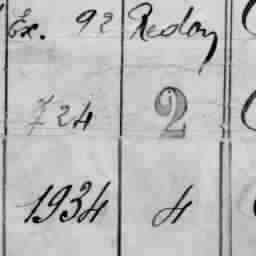 Ex. 92 Redon
724 2
1934 4